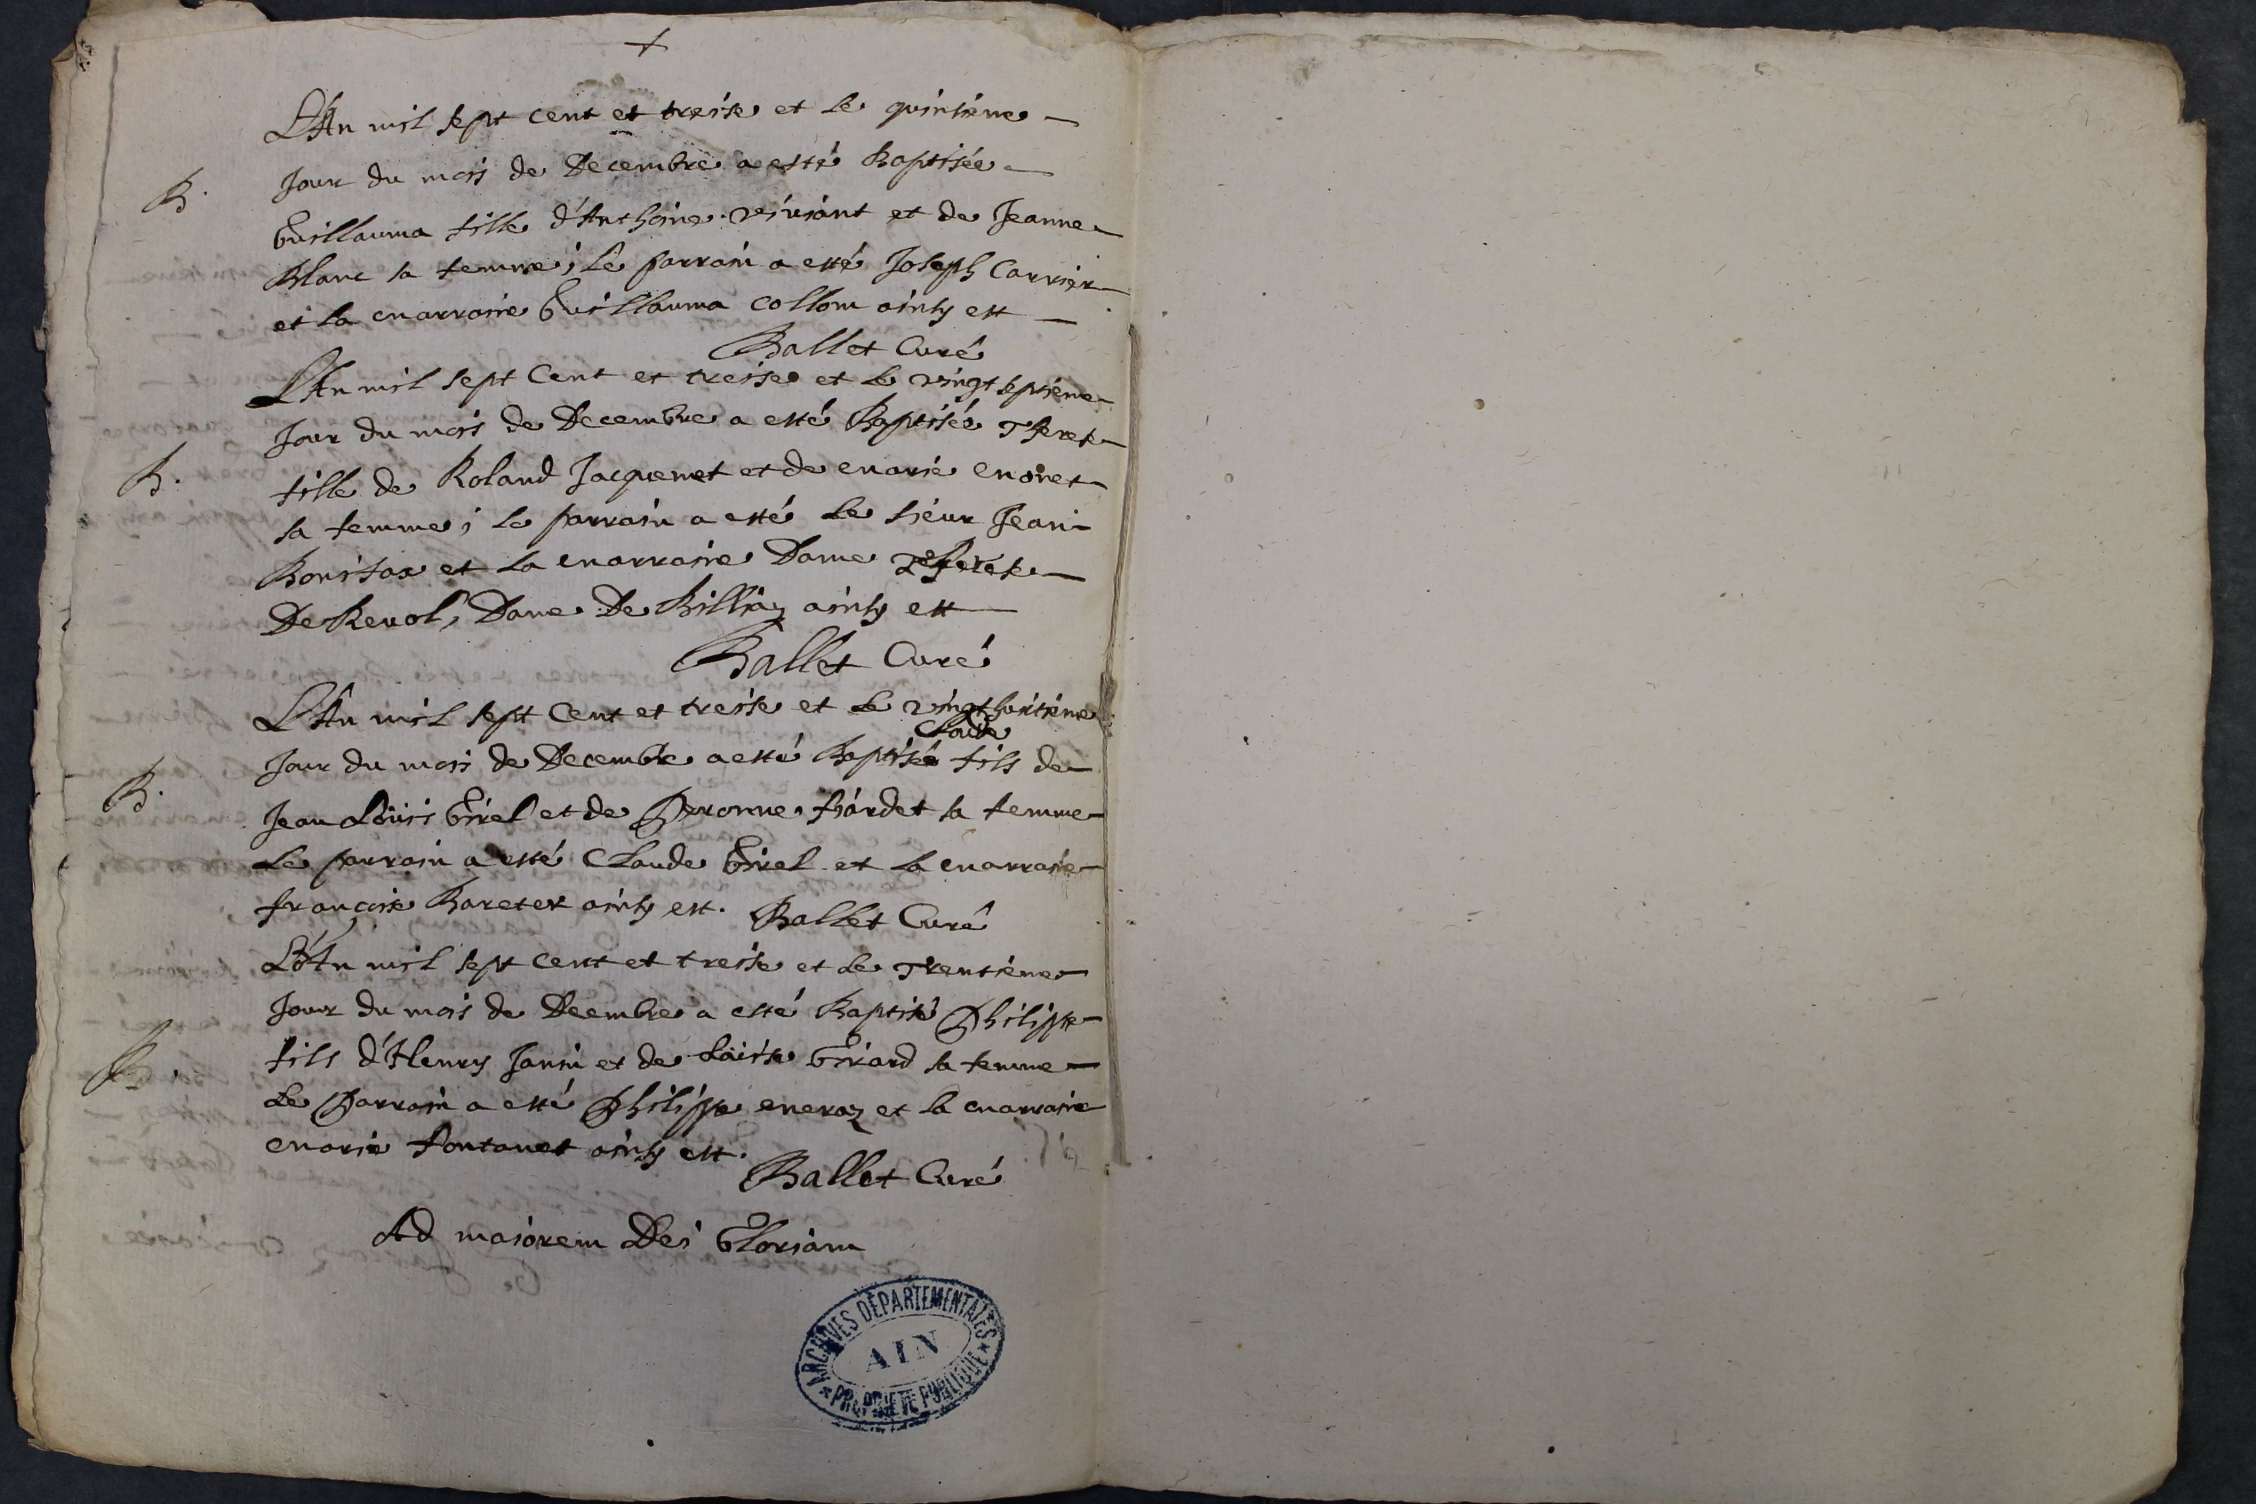 +
L'An mil sept cent et treise et le quinsième
B.
Jour du mois de Decembre a esté Baptisée
Guillauma fille d'Anthoine Viviant et de Jeanne
Blanc sa femme; Le parrain a esté Joseph Carrier
et la marraine Guillauma Collom ainsy est
Ballet Curé
L'An mil sept Cent et treise et le vingt septième
Jour du mois de Decembre a esté Baptisée Therese
B.
fille de Roland Jacquemet et de marie
sa femme; le parrain a esté le sieur Jean
Bonifax et la marraine Dame Therese
De Revol, Dame De Billiaz ainsy est
Ballet Curé
L'An mil sept Cent et treise et le vingt huitième
Claude
Jour du mois de Decembre a esté Baptisé fils de
B.
Jean Loüis Girel et de Perronne fiardet sa femme
Le parrain a esté Claude Girel et la marraine
françoise ainsy est. Ballet Curé
L'An mil sept cent et treise et le Trentième
Jour du mois de Deembre a esté Baptisé Philippe
B.
fils d'Henry Janin et de Loüise Girard sa femme
Le Parrain a esté Philippe meraz et la marraine
marie fontanet ainsy est.
Ballet Curé
Ad majorem Dei Gloriam
ARCHIVES DÉPARTEMENTALES
AIN
PROPRIÉTÉ PUBLIQUE